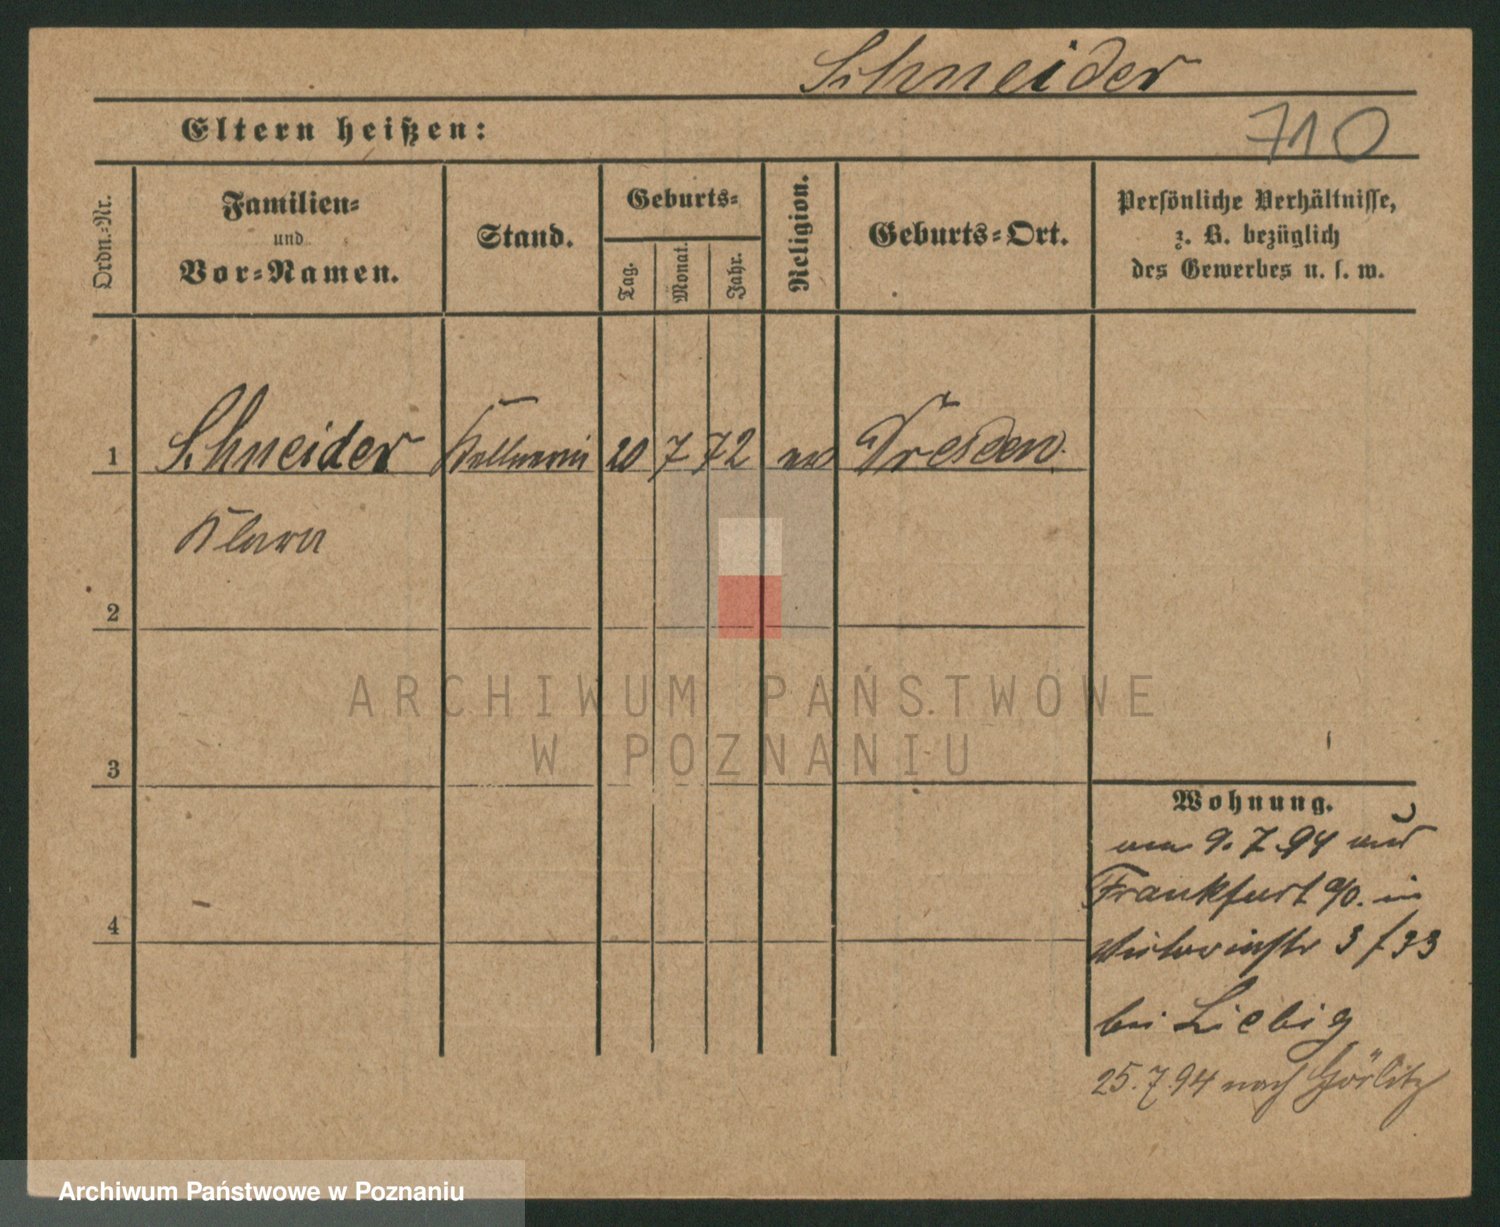 Schneider
Eltern heißen:
710
Ordn.-Nr.
Familien-
und
Vor-Namen.
Stand.
Geburts-
Tag.
Monat.
Jahr.
Religion.
Geburts-Ort.
Persönliche Verhältnisse,
z. B. bezüglich
des Gewerbes u. s. w.
1 Schneider Kellnerin 20 7 72 ev Dresden.
Klara
2
3
4
ARCHIWUM PAŃSTWOWE
W POZNANIU
Wohnung.
am 9. 7. 94 aus
Frankfurt a/O. in
3 / 33
bei Liebig
25. 7. 94 nach Görlitz
Archiwum Państwowe w Poznaniu